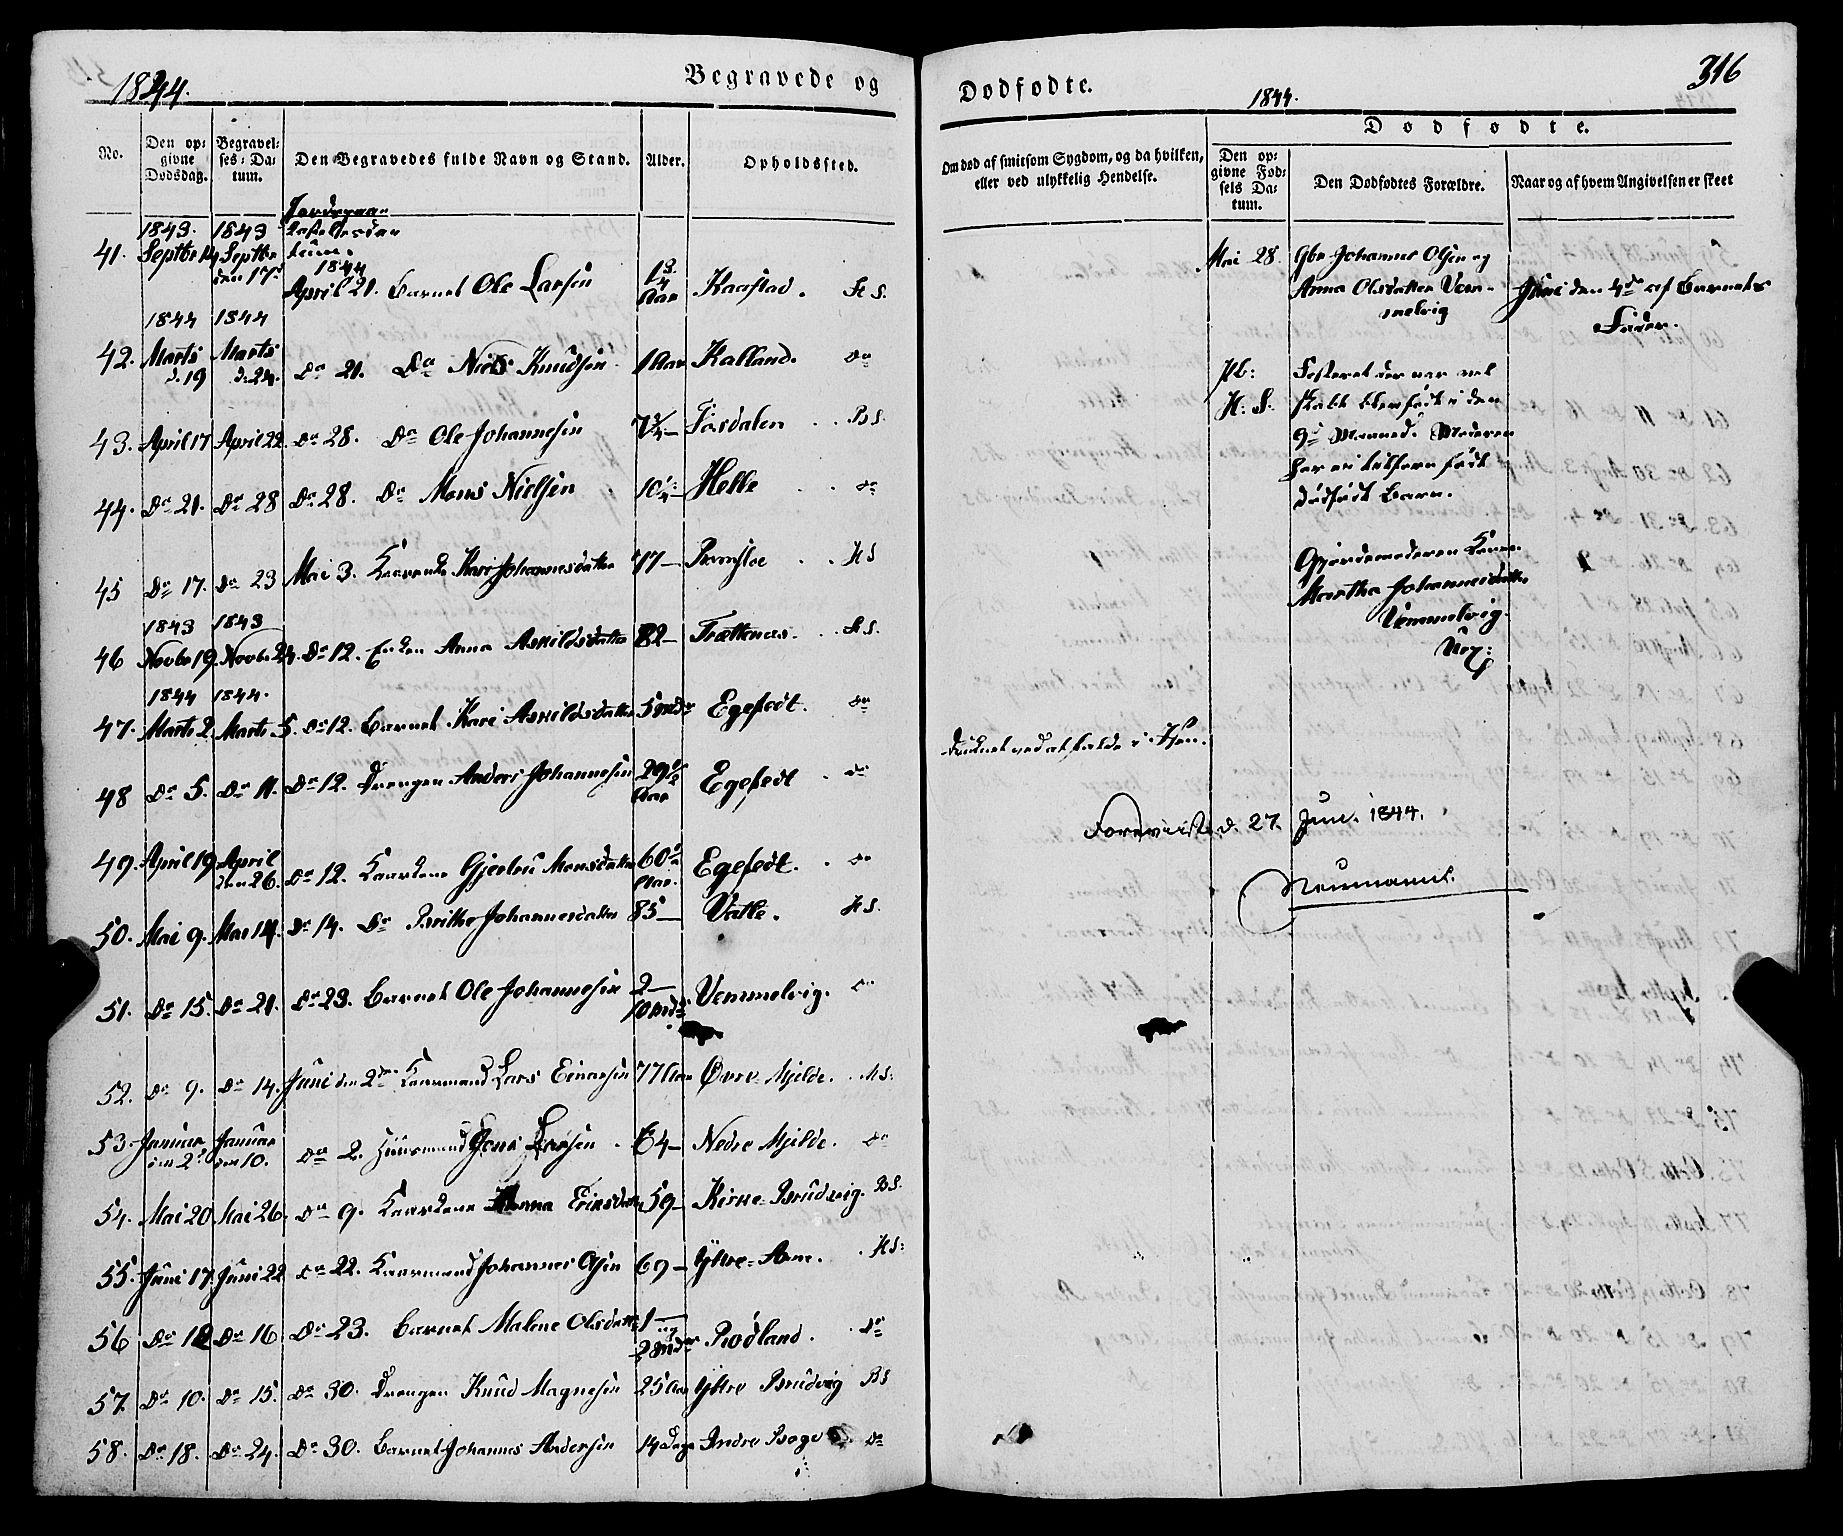 1844.
Begravede og
No.
Den op=
givne
Dødsdag.
Begravel=
ses= Da=
tum.
Den Begravedes fulde Navn og Stand.
Alder.
Opholdssted.
Jordpaa=
kastelsesda=
tum.
41. 1843. Septbr 14 1843 Septbr den 17de 1844 April 21. Barnet Ole Larsen 1 3/4 Aar Kaastad. H S.
42. 1844 Marts d. 19 1844 Marts d. 24. do 21. do Niels Knudsen 1 Aar Kalland. do
43. April 17 April 22. do 28. do Ole Johannesen 7 3/4 — Fosdalen B S.
44. do 21. do 28 do 28. do Mons Nielsen 10 1/4 — Helle do
45 do 17. do 23 Mai 3. Kaarenke Kari Johannesdatter 77 — Ramsloe H S
46 1843 Novbr 19. 1843 Novbr 24. do 12. Enken Anna Askildsdatter 82 — Trættenæs. H S.
47. 1844 Marts 2. 1844. Marts 5. do 12. Barnet Kari Askildsdatter 5 Mdr Egefødt. do
48 do 5. do 11. do 12. Drengen Anders Johannesen 29 1/2 Aar Egefødt do
49. April 19. April den 26. do 12. Kaarkone Gjertru Monsdatter 60 1/2 Aar. Egefødt. do
50. Mai 9. Mai 14. do 14. do Brithe Johannesdatter 85 — Vatle. H S.
51. do 15. do 21. do 23. Barnet Ole Johannesen 2 — 10 Mdr Vemmelvig. do
52. do 9. do 14. Juni den 2den Kaarmand Lars Einarsen 77 Aar Øvre Mjelde. H S.
53. Januar den 2d Januar den 10. do 2. Huusmand Jens Larsen 64 — Nedre Mjelde. do
54. Mai 20 Mai 26. do 9. Kaarkone Anna Eriksdatter 59 — Kirke=Brudvig. B S.
55. Juni 17. Juni 22 do 22. Kaarmand Johannes Olsen 69 — Yttre=Arne. H S:
56 do 12 do 16 do 23. Barnet Malene Olsdatter 1 — og 2 Mdr Rødland. do
57. do 10. do 15. do 30. Drengen Knud Magnesen 25 Aar Yttre Brudvig B S
58. do 18. do 24. do 30. Barnet Johannes Andersen 14 Dage Indre Boge do
316
Dødfødte.
1844.
Om død af smitsom Sygdom, og da hvilken,
eller ved ulykkelig Hendelse.
Dødfødte.
Den op=
givne Fød=
sels Da=
tum.
Den Dødfødtes Forældre.
Naar og af hvem Angivelsen er skeet
Mai 28. Gbr Johannes Olsen og
Anna Olsdatter Vem=
melvig
Juni den 4de af Barnets
Fader.
Pb:
H: S:
Fosteret der var vel
skabt blev født i den
9de Maaned. Moderen
har ei tilforn født
dødfødt Barn.
Gjordemoderen
Martha Johannesdatter
Vemmelvig.
Druknet ved at falde i Søen.
Foreviist d. 27. Jun. 1844.
Neumann.